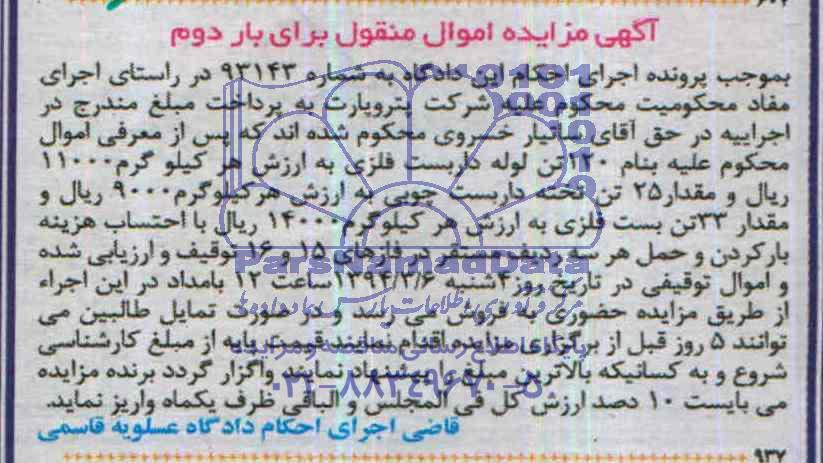 آگهی مزایده اموال منقول برای بار دوم
بموجب پرونده اجرای احکام این دادگاه به شماره ۹۳۱۴۳ در راستای اجرای
مفاد محکومیت محکوم علیه شرکت پتروپارت به پرداخت مبلغ مندرج در
اجراییه در حق آقای ساتیار خسروی محکوم شده اند که پس از معرفی اموال
محکوم علیه بنام ۱۲۰تن لوله داربست فلزی به ارزش هر کیلو گرم ۱۱۰۰۰
ریال و مقدار۲۵ تن تخته داربست چوبی به ارزش هرکیلوگرم۹۰۰۰ ریال و
مقدار ۳۳تن بست فلزی به ارزش هر کیلوگرم ۱۴۰۰۰ ریال با احتساب هزینه
بارکردن و حمل هر سه ردیف مستقر در فازهای ۱۵ و ۱۶ توقیف و ارزیابی شده
و اموال توقیفی در تاریخ روز شنبه ساعت ۱۲ بامداد در این اجراء
از طریق مزایده حضوری به فروش می رسد و در صورت تمایل طالبین می
توانند ۵ روز قبل از برگزاری مزایده اقدام نمایند قیمت پایه از مبلغ کارشناسی
شروع و به کسانیکه بالاترین مبلغ را پیشنهاد نمایند واگزار گردد برنده مزایده
می بایست ۱۰ دصد ارزش کل فی المجلس و الباقی ظرف یکماه واریز نماید.
قاضی اجرای احکام دادگاه عسلویه قاسمی
۹۳۷
ParsNamadData
۰۲۱-۸۸۳۴۹۶۷۰-۵